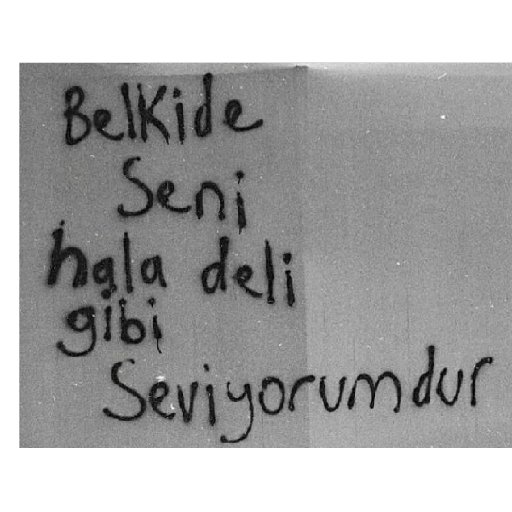 BelKide
Seni
hala deli
gibi
Seviyorumdur